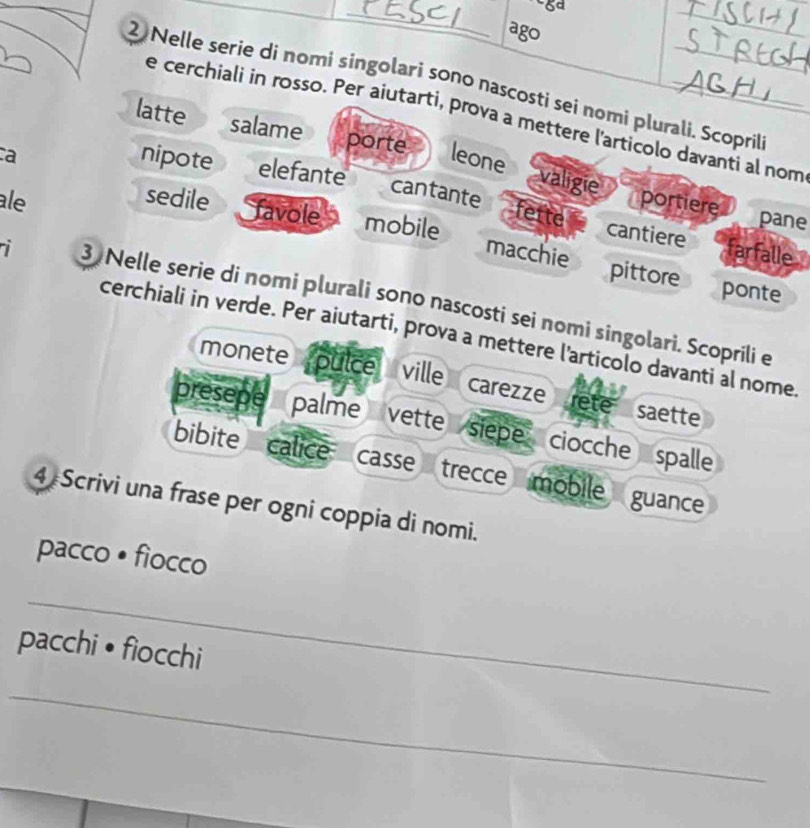 PESCI
ga
ago
FISCHI
STREGH
AGHI
2 Nelle serie di nomi singolari sono nascosti sei nomi plurali. Scoprili
e cerchiali in rosso. Per aiutarti, prova a mettere l'articolo davanti al nome
latte salame porte leone valigie portiere pane
ca
nipote elefante cantante fette cantiere farfalle
ale
sedile favole mobile macchie pittore ponte
ri
3 Nelle serie di nomi plurali sono nascosti sei nomi singolari. Scoprili e
cerchiali in verde. Per aiutarti, prova a mettere l'articolo davanti al nome.
monete pulce ville carezze rete saette
presepe palme vette siepe ciocche spalle
bibite calice casse trecce mobile guance
4 Scrivi una frase per ogni coppia di nomi.
pacco • fiocco
pacchi • fiocchi